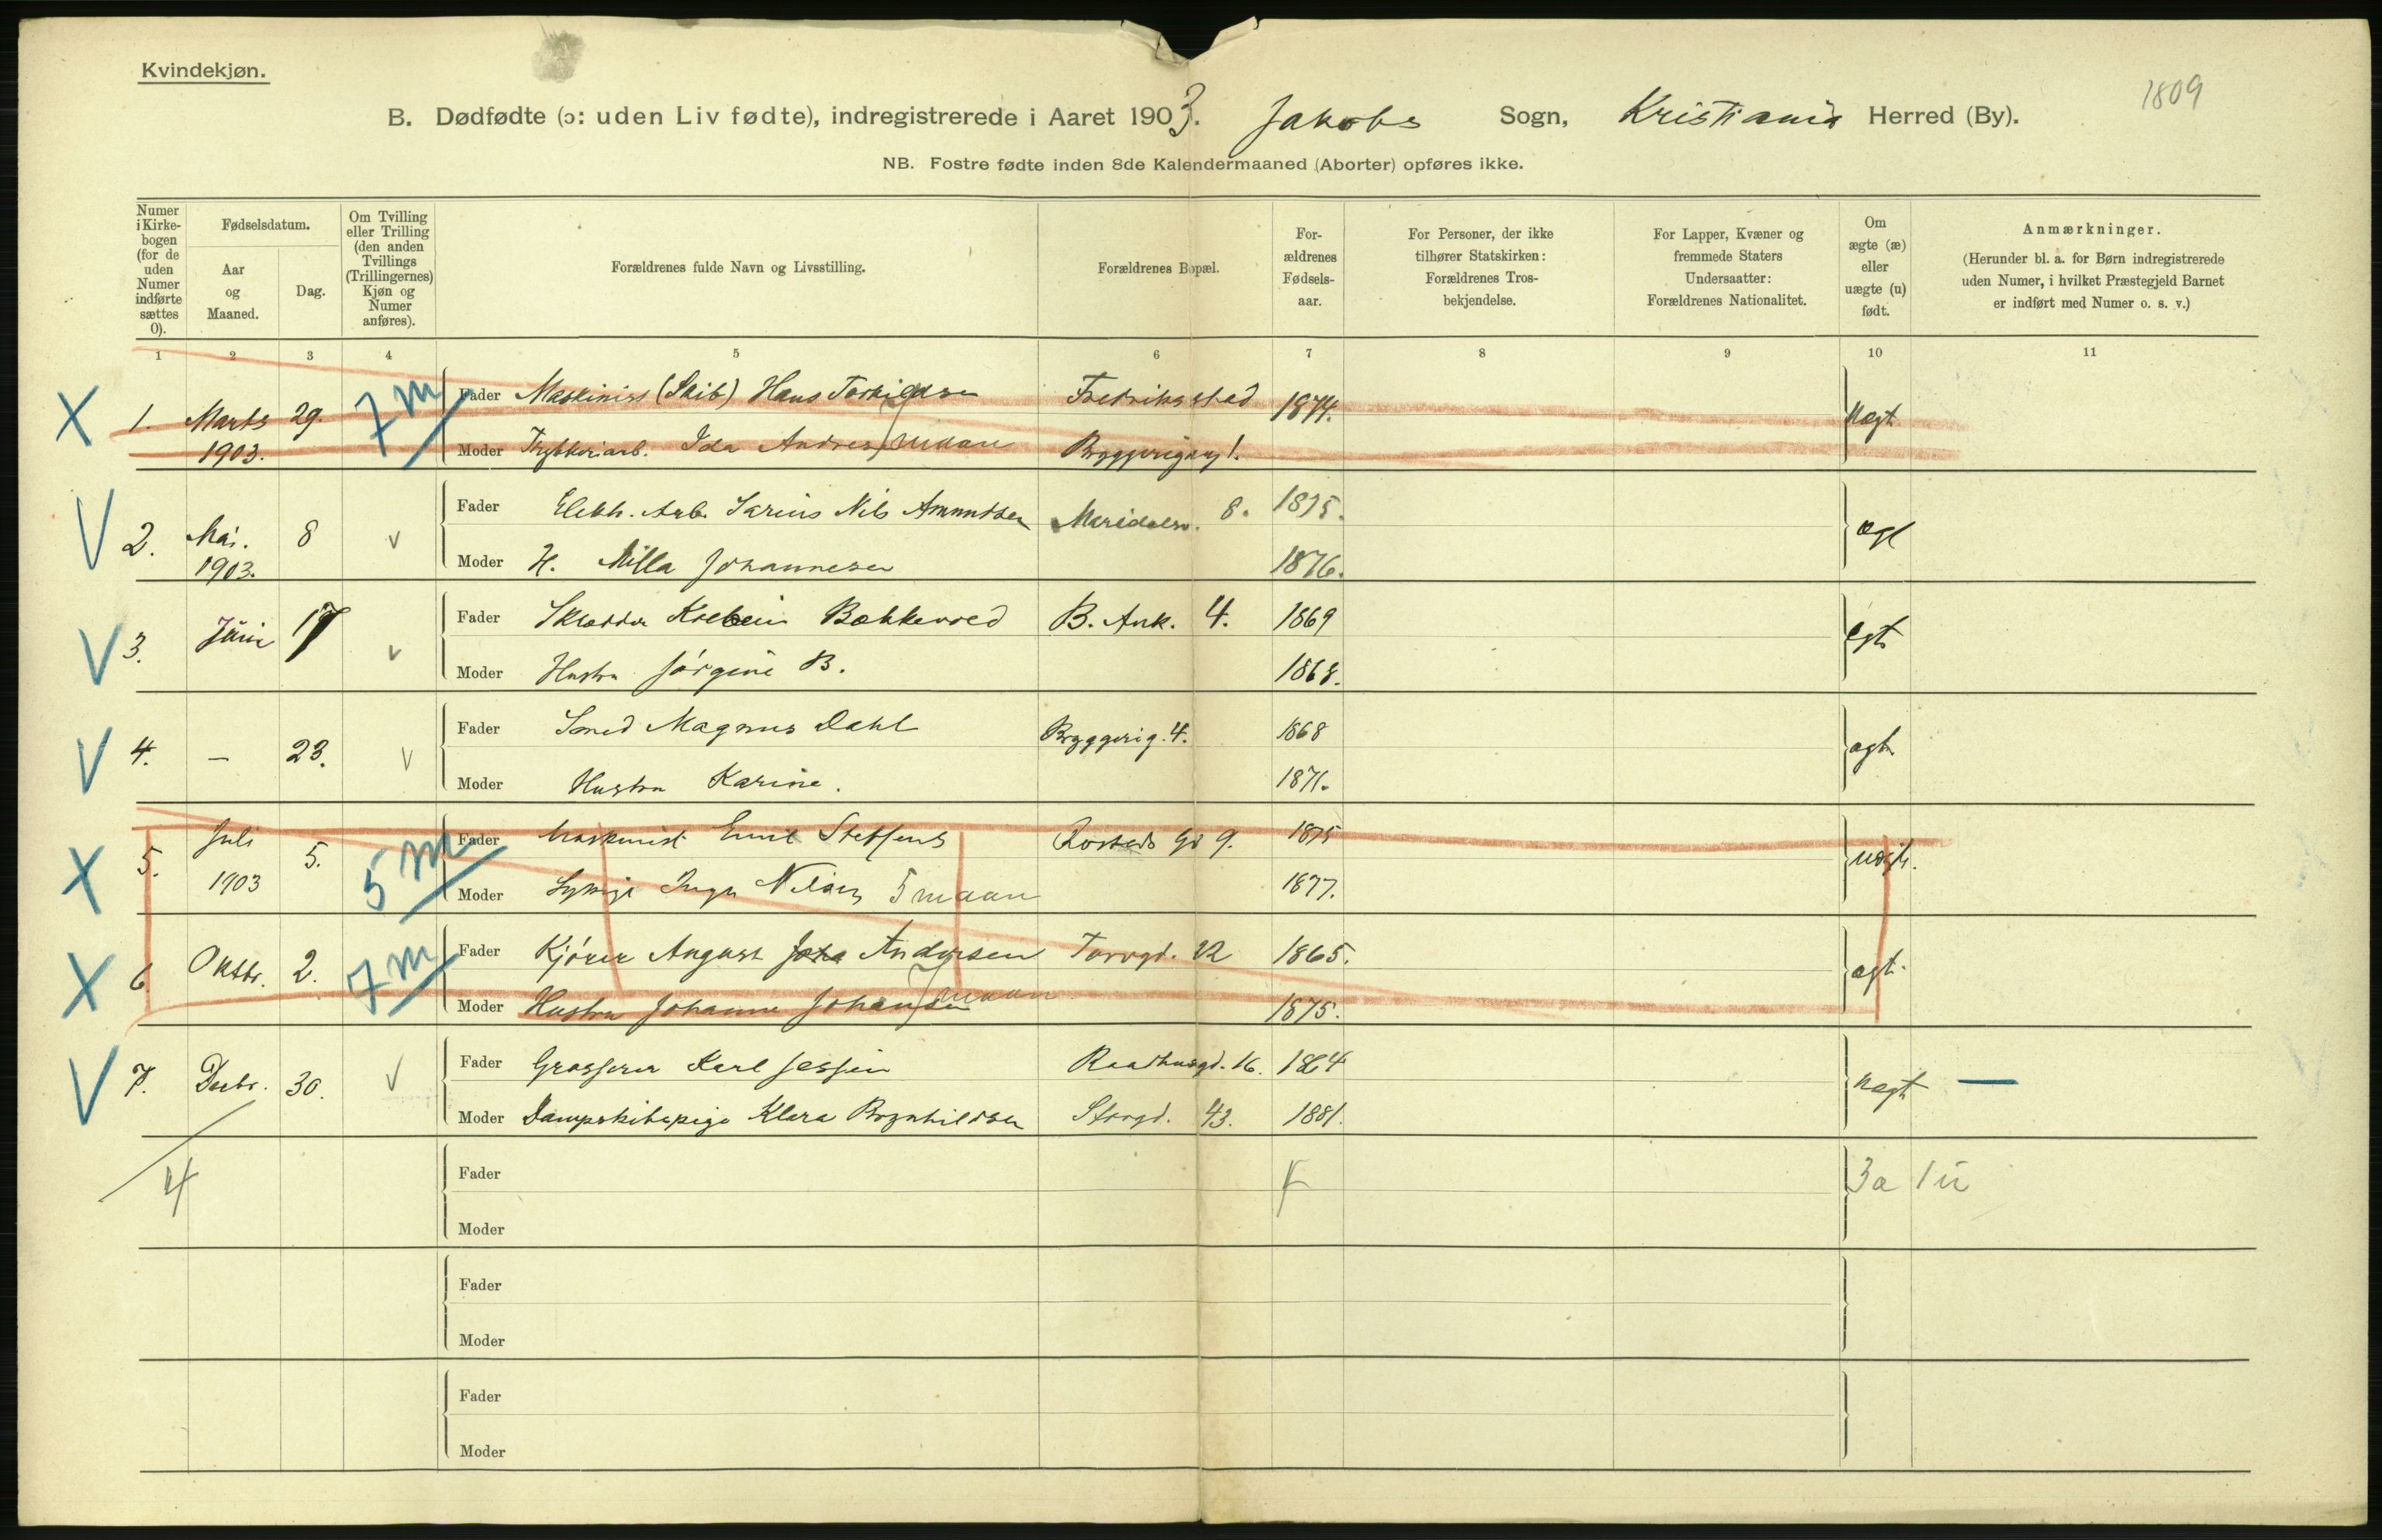 Kvindekjøn.
1809
B. Dødfødte (ɔ: uden Liv fødte), indregistrerede i Aaret 1903. Jakobs Sogn, Kristiania Herred (By).
NB. Fostre fødte inden 8de Kalendermaaned (Aborter) opføres ikke.
Numer i Kirke-bogen (for de uden Numer indførte sættes 0).
Fødselsdatum.
Aar og Maaned.
Dag.
Om Tvilling eller Trilling (den anden Tvillings (Trillingernes) Kjøn og Numer anføres).
Forældrenes fulde Navn og Livsstilling.
Forældrenes Bopæl.
For-ældrenes Fødsels-aar.
For Personer, der ikke tilhører Statskirken: Forældrenes Tros-bekjendelse.
For Lapper, Kvæner og fremmede Staters Undersaatter: Forældrenes Nationalitet.
Om ægte (æ) eller uægte (u) født.
Anmærkninger.
(Herunder bl. a. for Børn indregistrerede uden Numer, i hvilket Præstegjeld Barnet er indført med Numer o. s. v.)
1 2 3 4 5 6 7 8 9 10 11
X 1. Marts 29. 7 m Fader Maskinist (Skib) Hans Torkildsen Fredrikstad 1874. uægt
1903. Moder Ida Andresen 7 maan Bryggerigang 1.
V 2. Mai. 8 v Fader Elektr. Arb. Nils Amundsen Maridalsv. 8. 1875. ægt
1903. Moder H. Milla Johannesen 1876.
V 3. Juni 17 v Fader Skrædder Bækkevold B. Ank. 4. 1869 egt
Moder Hustru Jørgine B. 1868.
V 4. — 23. v Fader Smed Magnus Dahl Bryggerig. 4. 1868 ægt
Moder Hustru Karine. 1871.
X 5. Juli 5. 5 m Fader Maskinist Emil Steffens Rosteds Gd 9. 1875 uægt.
1903 Moder Sypige Inga Nilsen 5 maan 1877.
X 6 Oktbr. 2. 7 m Fader Kjører August Andersen Torvgd. 22 1865. ægt.
Moder Hustru Johanne Johansen 7 maan 1875.
V 7. Decbr. 30. v Fader Grosserer Karl Jessen Raadhusgd. 16. 1864 uægt —
Moder Dampskibspige Klara Brynhildsen Storgd. 43. 1881.
4 Fader 3a 1u
Moder
Fader
Moder
Fader
Moder